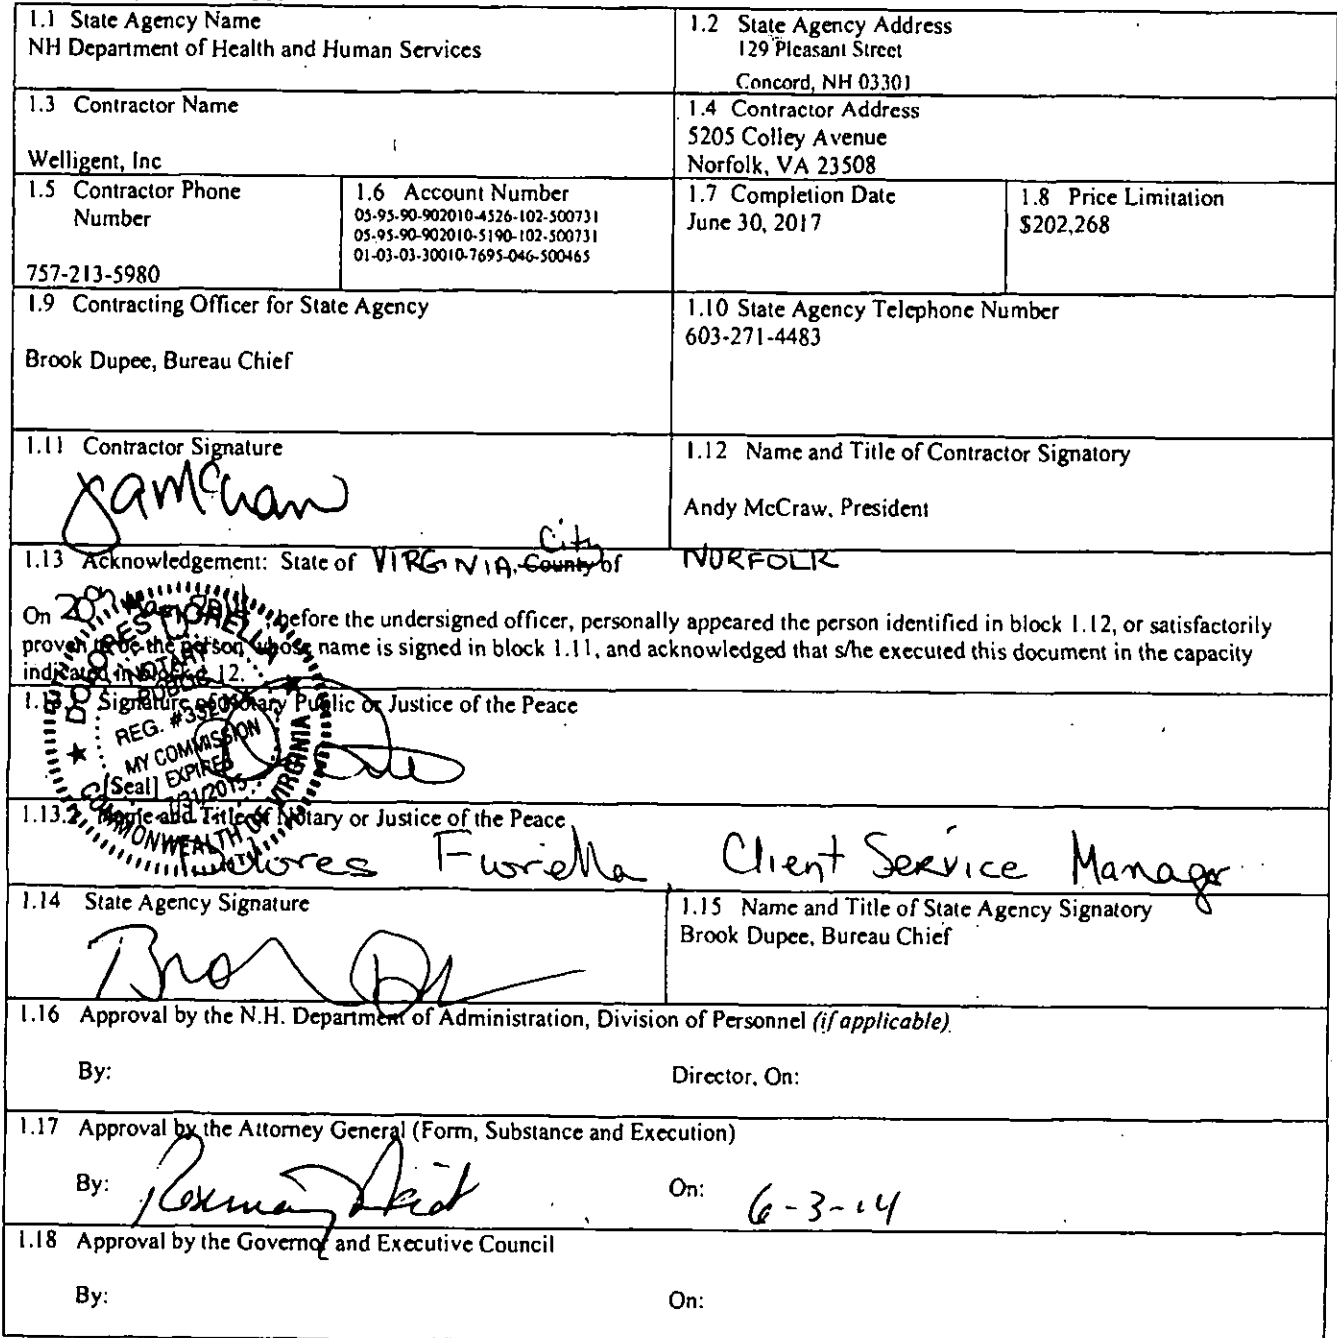 1.1 State Agency Name
NH Department of Health and Human Services
1.2 State Agency Address
129 Pleasant Street
Concord, NH 03301
1.3 Contractor Name
Welligent, Inc
1.4 Contractor Address
5205 Colley Avenue
Norfolk, VA 23508
1.5 Contractor Phone
Number
757-213-5980
1.6 Account Number
05-95-90-902010-4526-102-500731
05-95-90-902010-5190-102-500731
01-03-03-30010-7695-046-500465
1.7 Completion Date
June 30, 2017
1.8 Price Limitation
$202,268
1.9 Contracting Officer for State Agency
Brook Dupee, Bureau Chief
1.10 State Agency Telephone Number
603-271-4483
1.11 Contractor Signature
1.12 Name and Title of Contractor Signatory
Andy McCraw, President
City
1.13 Acknowledgement: State of VIRGINIA, County of NORFOLK
On before the undersigned officer, personally appeared the person identified in block 1.12, or satisfactorily
proven to be the person whose name is signed in block 1.11, and acknowledged that s/he executed this document in the capacity
indicated in block 1.12.
Signature of Notary Public or Justice of the Peace
DOLORES FIORELLA
NOTARY
PUBLIC
REG. #
MY COMMISSION
EXPIRES
[Seal]
COMMONWEALTH OF VIRGINIA
1.13.2 Name and Title of Notary or Justice of the Peace
Dolores Fiorella, Client Service Manager
1.14 State Agency Signature
1.15 Name and Title of State Agency Signatory
Brook Dupee, Bureau Chief
1.16 Approval by the N.H. Department of Administration, Division of Personnel (if applicable)
By:
Director, On:
1.17 Approval by the Attorney General (Form, Substance and Execution)
By:
On: 6-3-14
1.18 Approval by the Governor and Executive Council
By:
On: